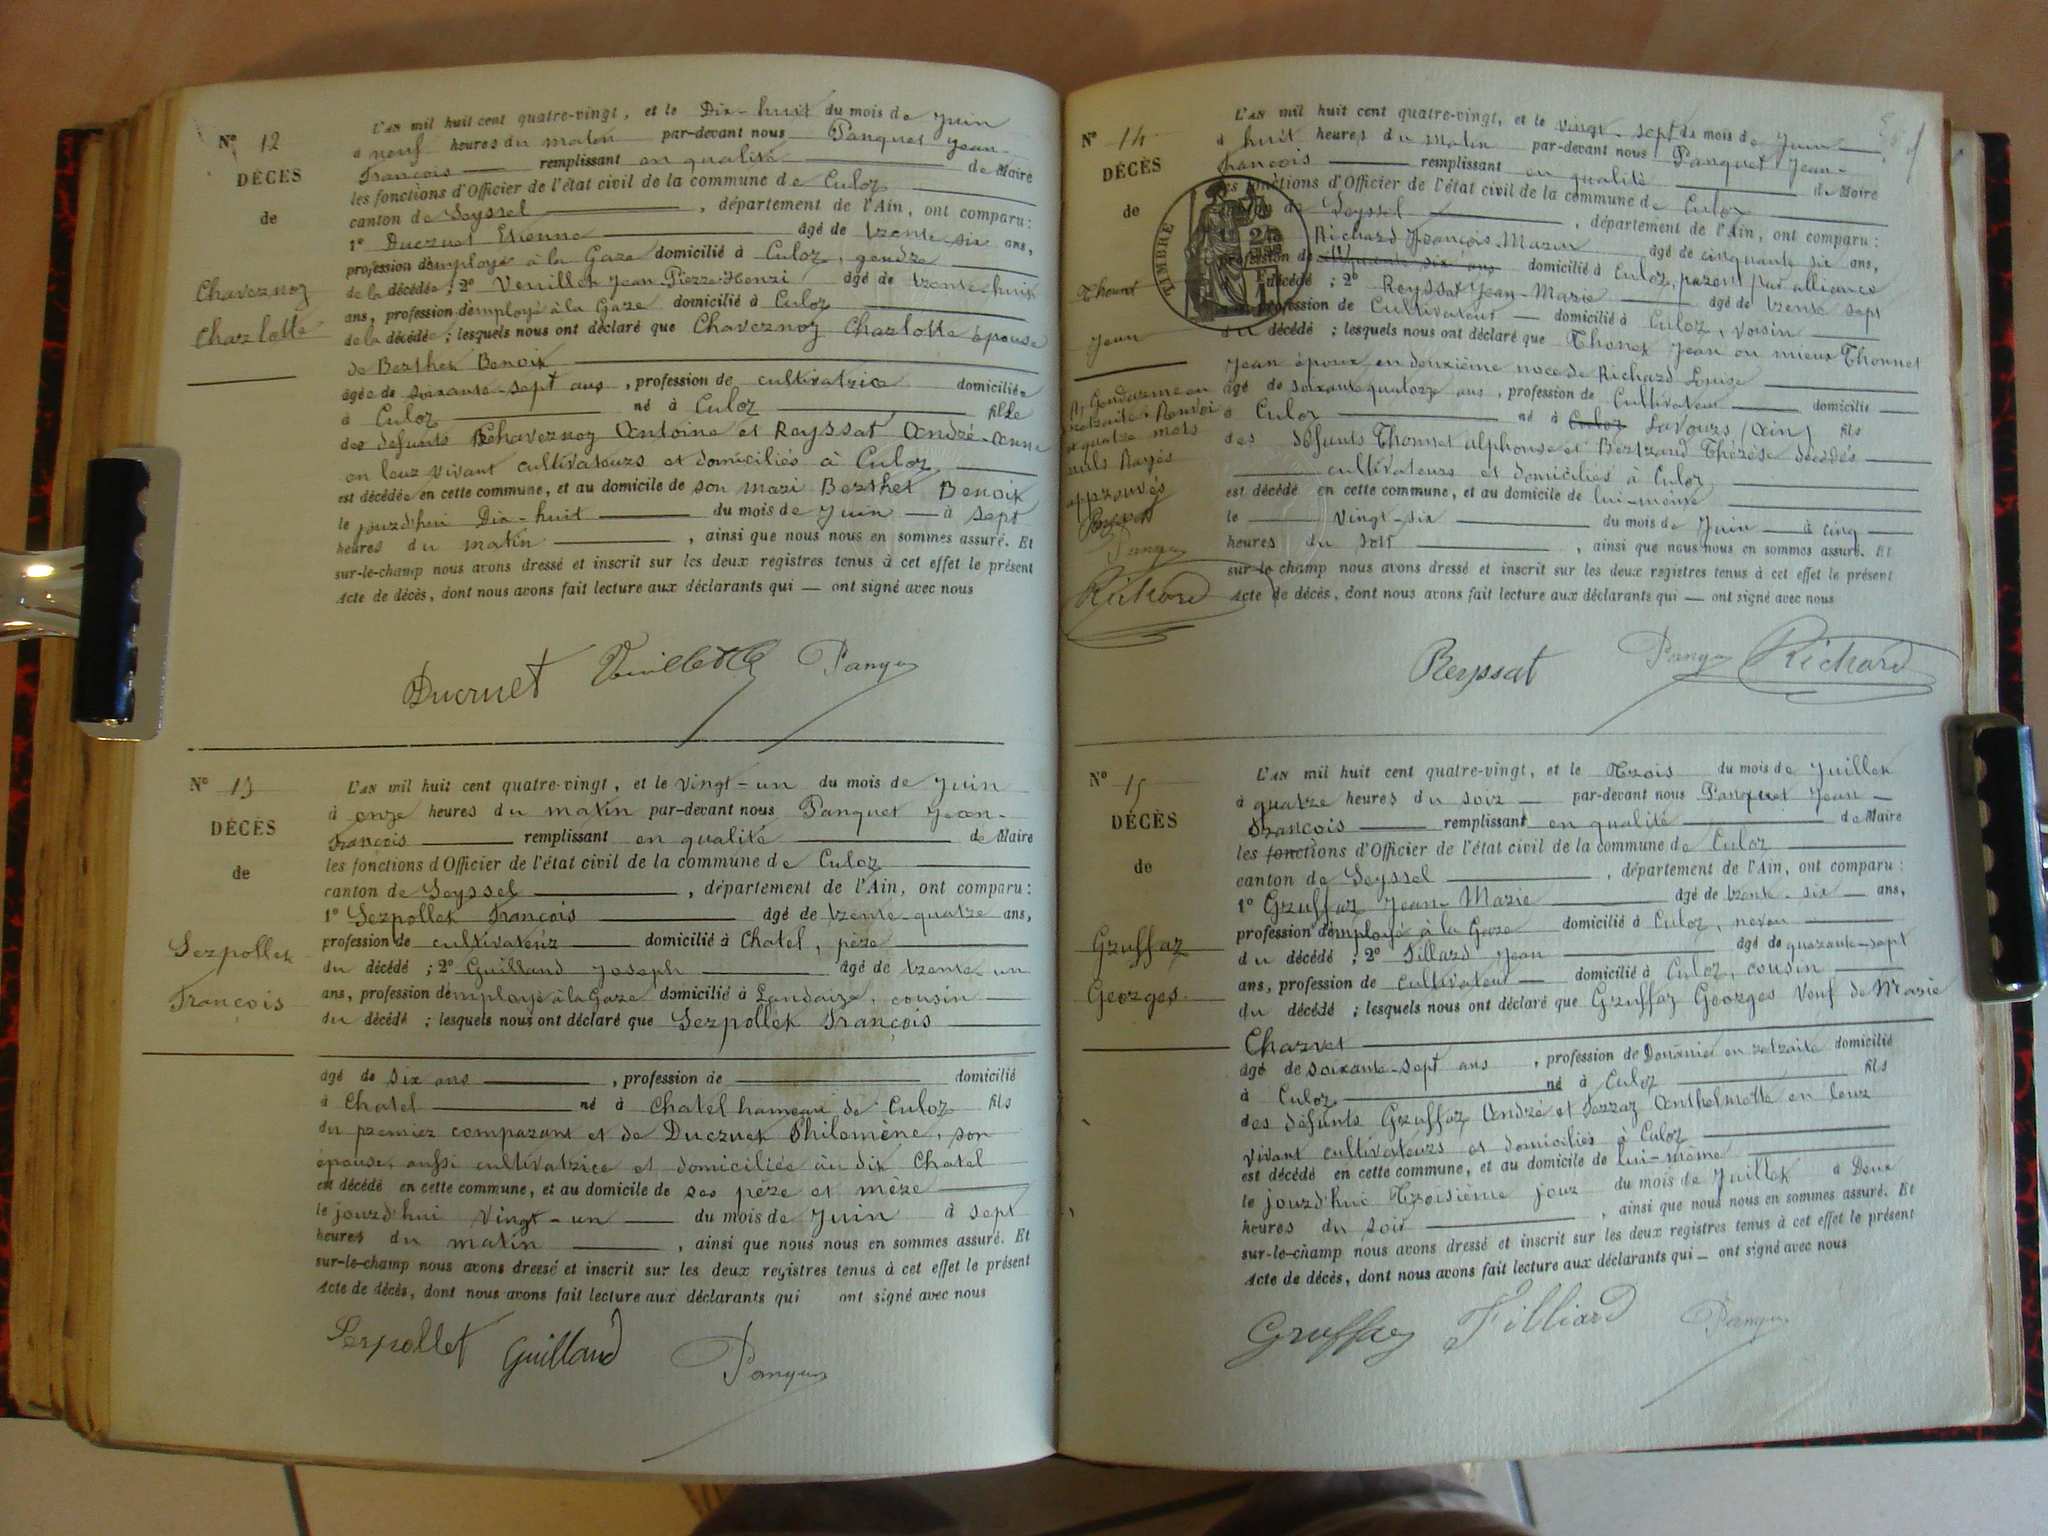 N° 12
DÉCÈS
de
Chavernoz
Charlotte
L'AN mil huit cent quatre-vingt, et le Dix-huit du mois de Juin
à neuf heures du matin par-devant nous Panquet Jean-
François remplissant en qualité de Maire
les fonctions d'Officier de l'état civil de la commune de Culoz
canton de Seyssel, département de l'Ain, ont comparu:
1° Ducruet Etienne âgé de trente-six ans,
profession d'employé à la Gare domicilié à Culoz, gendre
de la décédée; 2° Veuillet Jean-Pierre-Henri âgé de trente-huit
ans, profession d'employé à la Gare domicilié à Culoz
de la décédée; lesquels nous ont déclaré que Chavernoz Charlotte épouse
de Berthet Benoit
âgée de soixante-sept ans, profession de cultivatrice domiciliée
à Culoz né à Culoz fille
des défunts Chavernoz Antoine et Reyssat André-Anne
en leur vivant cultivateurs et domiciliés à Culoz
est décédée en cette commune, et au domicile de son mari Berthet Benoit
le jourd'hui Dix-huit du mois de Juin à sept
heures du matin, ainsi que nous nous en sommes assuré. Et
sur-le-champ nous avons dressé et inscrit sur les deux registres tenus à cet effet le présent
Acte de décès, dont nous avons fait lecture aux déclarants qui — ont signé avec nous
Ducruet Panquet
N° 13
DÉCÈS
de
Serpollet
François
L'AN mil huit cent quatre-vingt, et le vingt-un du mois de Juin
à onze heures du matin par-devant nous Panquet Jean-
François remplissant en qualité de Maire
les fonctions d'Officier de l'état civil de la commune de Culoz
canton de Seyssel, département de l'Ain, ont comparu:
1° Serpollet François âgé de trente-quatre ans,
profession de cultivateur domicilié à Chatel, père
du décédé; 2° Guilland Joseph âgé de trente-un
ans, profession d'employé à la Gare domicilié à Landaize, cousin
du décédé; lesquels nous ont déclaré que Serpollet François
âgé de six ans, profession de domicilié
à Chatel né à Chatel hameau de Culoz fils
du premier comparant et de Ducruet Philomène, son
épouse, aussi cultivatrice et domiciliée au dit Chatel
est décédé en cette commune, et au domicile de ses père et mère
le jourd'hui vingt-un du mois de Juin à sept
heures du matin, ainsi que nous nous en sommes assuré. Et
sur-le-champ nous avons dressé et inscrit sur les deux registres tenus à cet effet le présent
Acte de décès, dont nous avons fait lecture aux déclarants qui ont signé avec nous
Serpollet Guilland Panquet
N° 14
DÉCÈS
de
Thonnet
Jean
TIMBRE
L'AN mil huit cent quatre-vingt, et le vingt-sept du mois de Juin
à huit heures du matin par-devant nous Panquet Jean-
François remplissant en qualité de Maire
les fonctions d'Officier de l'état civil de la commune de Culoz
canton de Seyssel, département de l'Ain, ont comparu:
Richard François Marin âgé de cinquante six ans,
profession de domicilié à Culoz, parent par alliance
décédé; 2° Reyssat Jean-Marie âgé de trente sept
profession de Cultivateur domicilié à Culoz, voisin
du décédé; lesquels nous ont déclaré que Thonet Jean ou mieux Thonnet
Jean époux en deuxième noce de Richard Louise
âgé de soixante quatorze ans, profession de Cultivateur domicilié
à Culoz né à Culoz Lavours (Ain) fils
des défunts Thonnet alphonse et Bertrand Thérèse décédés
cultivateurs et domiciliés à Culoz
est décédé en cette commune, et au domicile de lui-même
le vingt-six du mois de Juin à cinq
heures du soir, ainsi que nous nous en sommes assuré. Et
sur-le-champ nous avons dressé et inscrit sur les deux registres tenus à cet effet le présent
Acte de décès, dont nous avons fait lecture aux déclarants qui — ont signé avec nous
Gendarme en
retraite. Renvoi
et quatre mots
nuls Rayés
approuvés
Reyssat
Panquet
Richard
Reyssat Panquet Richard
N° 15
DÉCÈS
de
Gruffaz
Georges
L'AN mil huit cent quatre-vingt, et le Trois du mois de Juillet
à quatre heures du soir par-devant nous Panquet Jean-
François remplissant en qualité de Maire
les fonctions d'Officier de l'état civil de la commune de Culoz
canton de Seyssel, département de l'Ain, ont comparu:
1° Gruffaz Jean-Marie âgé de trente-six ans,
profession d'employé à la Gare domicilié à Culoz, neveu
du décédé; 2° Fillard Jean âgé de quarante-sept
ans, profession de cultivateur domicilié à Culoz, cousin
du décédé; lesquels nous ont déclaré que Gruffaz Georges Veuf de Marie
Charvet
âgé de soixante-sept ans, profession de Douanier en retraite domicilié
à Culoz né à Culoz fils
des défunts Gruffaz André et Ferraz Anthelmette en leur
vivant cultivateurs et domiciliés à Culoz
est décédé en cette commune, et au domicile de lui-même
le jourd'hui Troisième jour du mois de Juillet à Deux
heures du soir, ainsi que nous nous en sommes assuré. Et
sur-le-champ nous avons dressé et inscrit sur les deux registres tenus à cet effet le présent
Acte de décès, dont nous avons fait lecture aux déclarants qui — ont signé avec nous
Gruffaz Filliard Panquet